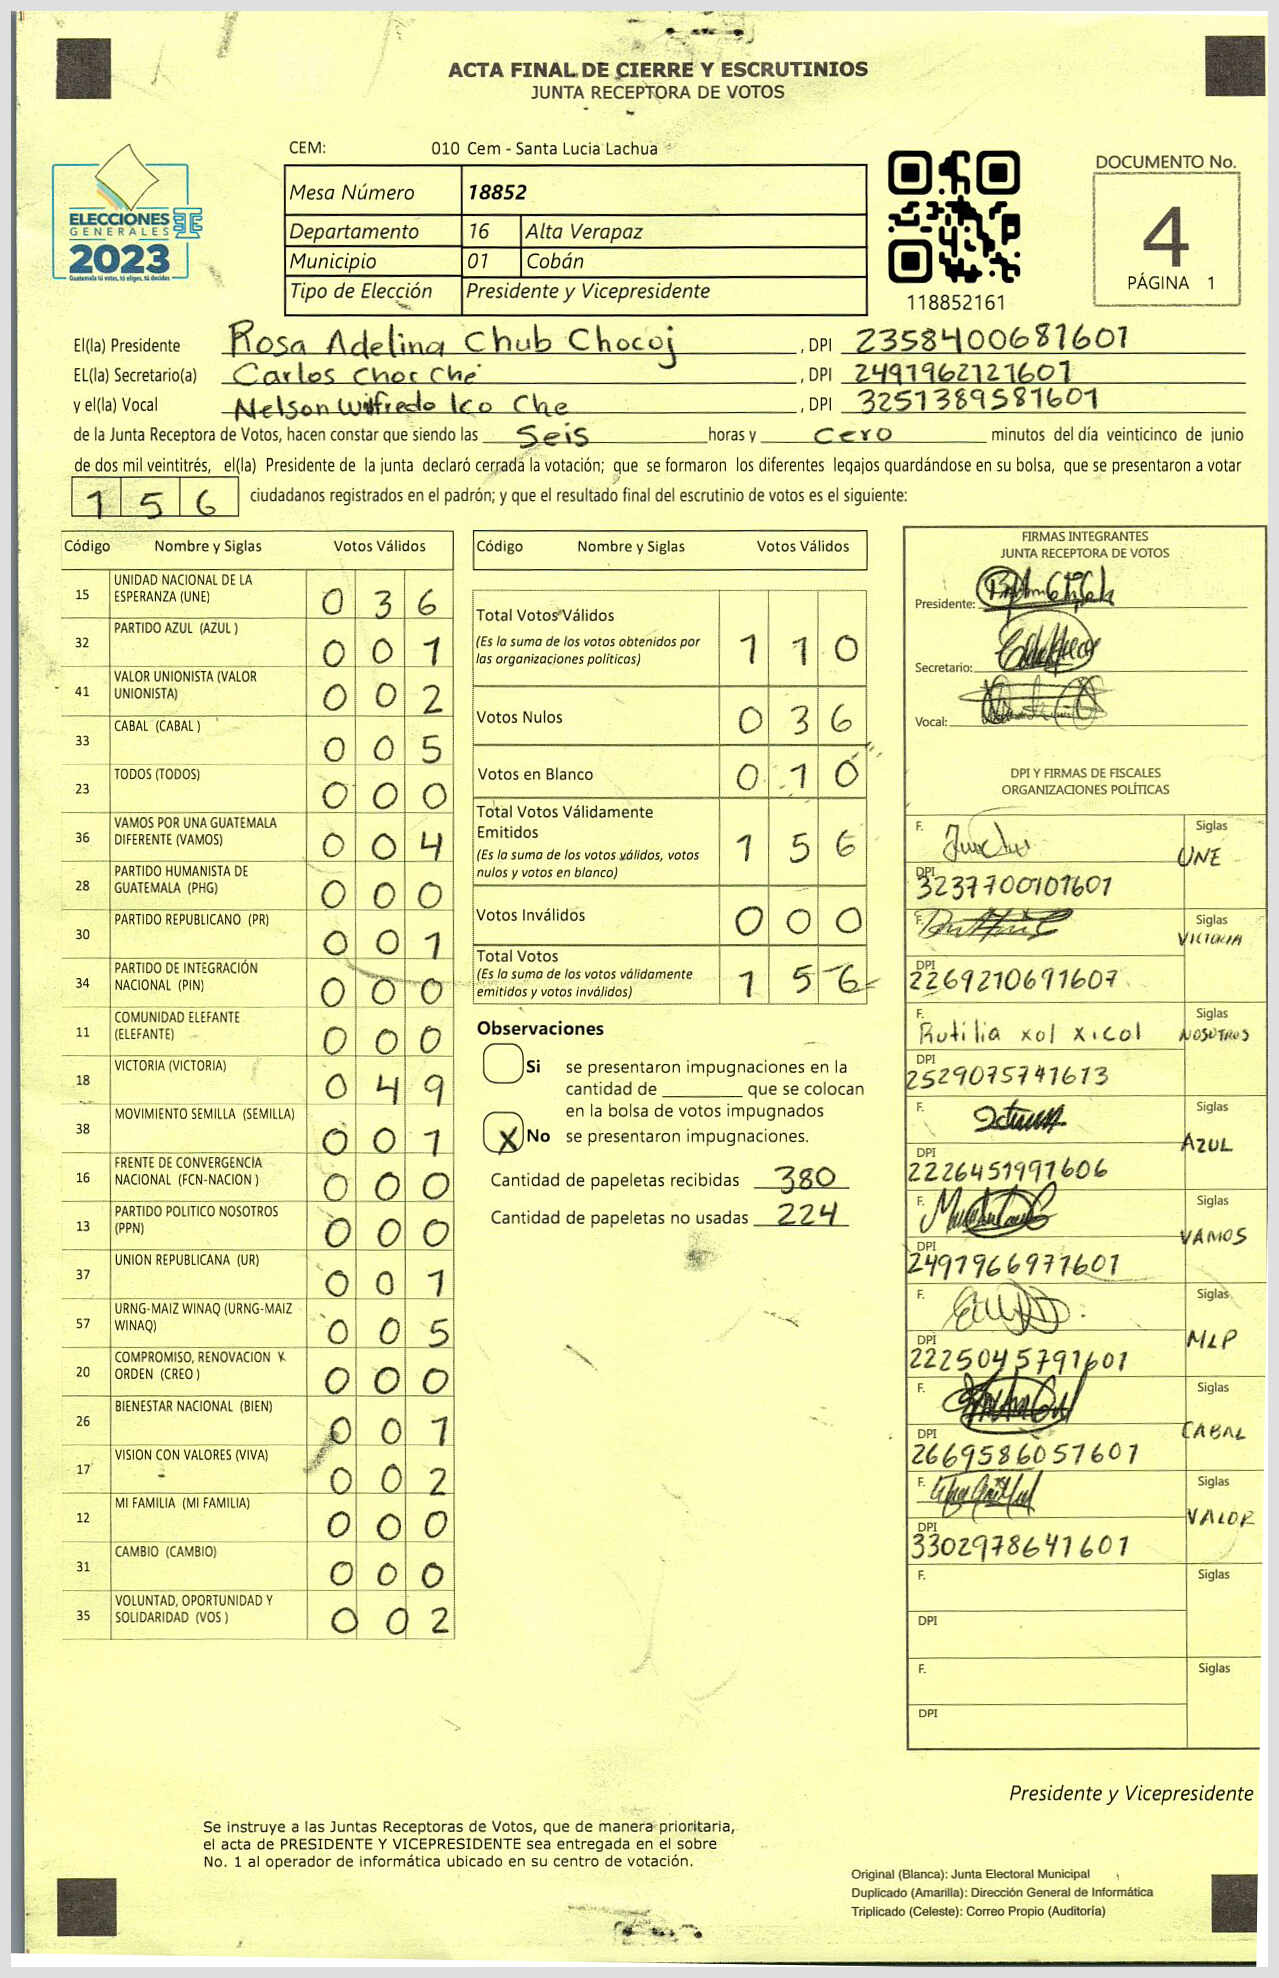 ACTA FINAL DE CIERRE Y ESCRUTINIOS
JUNTA RECEPTORA DE VOTOS
CEM: 010 Cem - Santa Lucia Lachua
ELECCIONES
GENERALES
2023
Guatemala tú votas, tú eliges, tú decides
Mesa Número 18852
Departamento 16 Alta Verapaz
Municipio 01 Cobán
Tipo de Elección Presidente y Vicepresidente
118852161
DOCUMENTO No.
4
PÁGINA 1
El(la) Presidente Rosa Adelina Chub Chocoj , DPI 2358400681601
EL(la) Secretario(a) Carlos Choc Che , DPI 2491962121601
y el(la) Vocal Nelson Wilfredo Ico Che , DPI 3251389581601
de la Junta Receptora de Votos, hacen constar que siendo las Seis horas y cero minutos del día veinticinco de junio
de dos mil veintitrés, el(la) Presidente de la junta declaró cerrada la votación; que se formaron los diferentes legajos quardándose en su bolsa, que se presentaron a votar
156 ciudadanos registrados en el padrón; y que el resultado final del escrutinio de votos es el siguiente:
Código Nombre y Siglas Votos Válidos
15 UNIDAD NACIONAL DE LA ESPERANZA (UNE) 036
32 PARTIDO AZUL (AZUL ) 001
41 VALOR UNIONISTA (VALOR UNIONISTA) 002
33 CABAL (CABAL ) 005
23 TODOS (TODOS) 000
36 VAMOS POR UNA GUATEMALA DIFERENTE (VAMOS) 004
28 PARTIDO HUMANISTA DE GUATEMALA (PHG) 000
30 PARTIDO REPUBLICANO (PR) 001
34 PARTIDO DE INTEGRACIÓN NACIONAL (PIN) 000
11 COMUNIDAD ELEFANTE (ELEFANTE) 000
18 VICTORIA (VICTORIA) 049
38 MOVIMIENTO SEMILLA (SEMILLA) 001
16 FRENTE DE CONVERGENCIA NACIONAL (FCN-NACION ) 000
13 PARTIDO POLITICO NOSOTROS (PPN) 000
37 UNION REPUBLICANA (UR) 001
57 URNG-MAIZ WINAQ (URNG-MAIZ WINAQ) 005
20 COMPROMISO, RENOVACION Y ORDEN (CREO ) 000
26 BIENESTAR NACIONAL (BIEN) 001
17 VISION CON VALORES (VIVA) 002
12 MI FAMILIA (MI FAMILIA) 000
31 CAMBIO (CAMBIO) 000
35 VOLUNTAD, OPORTUNIDAD Y SOLIDARIDAD (VOS ) 002
Código Nombre y Siglas Votos Válidos
Total Votos Válidos 110
(Es la suma de los votos obtenidos por
las organizaciones políticas)
Votos Nulos 036
Votos en Blanco 010
Total Votos Válidamente
Emitidos 156
(Es la suma de los votos válidos, votos
nulos y votos en blanco)
Votos Inválidos 000
Total Votos 156
(Es la suma de los votos válidamente
emitidos y votos inválidos)
Observaciones
Si se presentaron impugnaciones en la
cantidad de ________ que se colocan
en la bolsa de votos impugnados
X No se presentaron impugnaciones.
Cantidad de papeletas recibidas 380
Cantidad de papeletas no usadas 224
FIRMAS INTEGRANTES
JUNTA RECEPTORA DE VOTOS
Presidente:
Secretario:
Vocal:
DPI Y FIRMAS DE FISCALES
ORGANIZACIONES POLÍTICAS
F. Siglas UNE
DPI 3237700101601
F. Siglas VICTORIA
DPI 2269210691607
F. Rutilia xol xicol Siglas NOSOTROS
DPI 2529075741613
F. Siglas AZUL
DPI 2226451991606
F. Siglas VAMOS
DPI 2491966971601
F. Siglas MLP
DPI 2225045791601
F. Siglas CABAL
DPI 2669586051601
F. Siglas VALOR
DPI 3302978641601
F. Siglas
DPI
F. Siglas
DPI
Presidente y Vicepresidente
Se instruye a las Juntas Receptoras de Votos, que de manera prioritaria,
el acta de PRESIDENTE Y VICEPRESIDENTE sea entregada en el sobre
No. 1 al operador de informática ubicado en su centro de votación.
Original (Blanca): Junta Electoral Municipal
Duplicado (Amarilla): Dirección General de Informática
Triplicado (Celeste): Correo Propio (Auditoría)